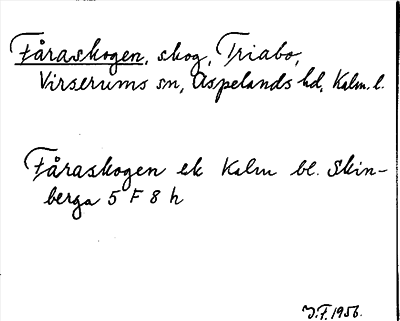 Fåraskogen, skog, Triabo,
Virserums sn, Aspelands hd, Kalm. l.
Fåraskogen ek Kalm bl. Skin-
berga 5 F 8 h
J.F. 1956.